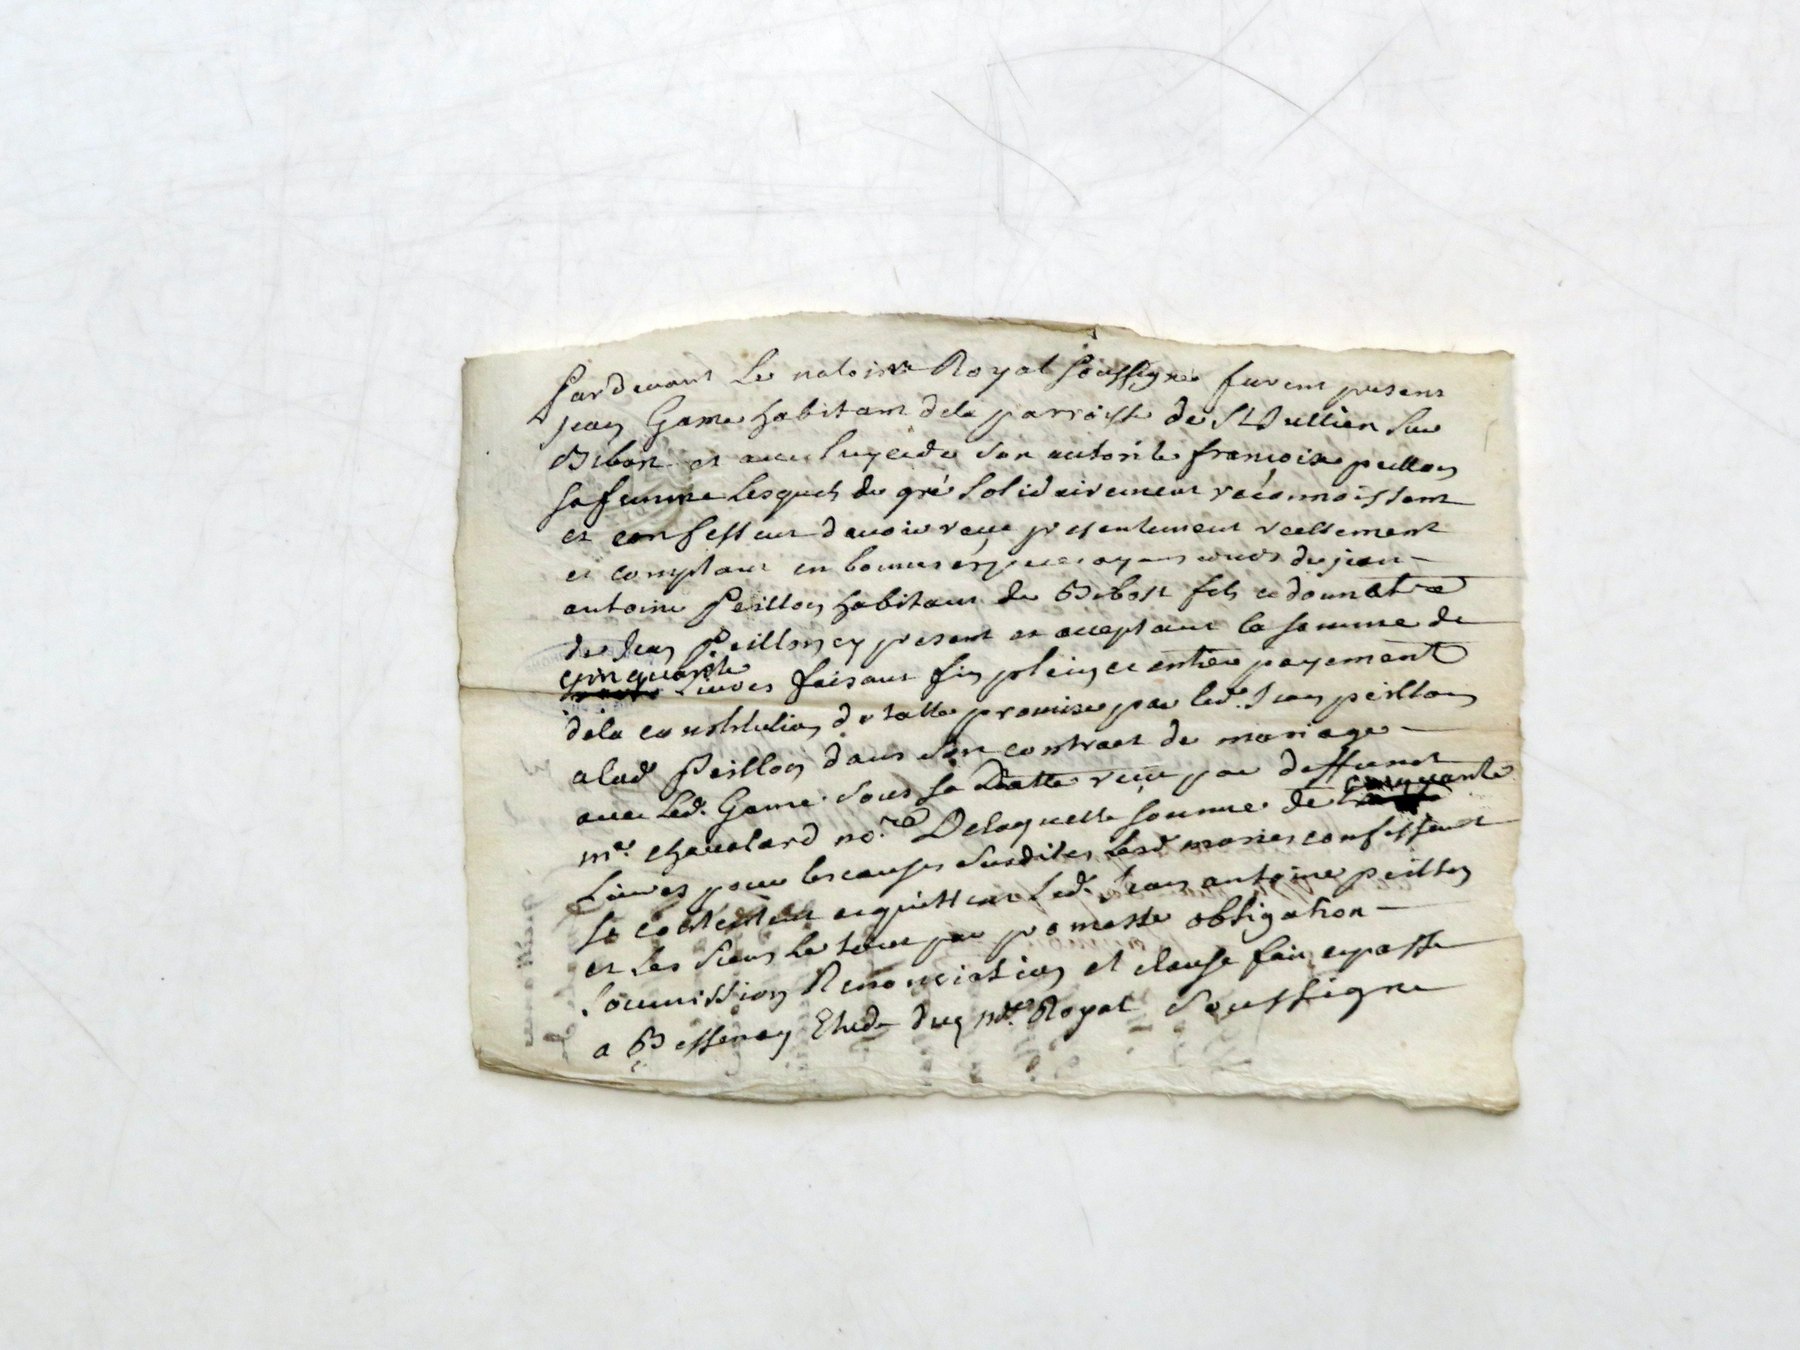 Pardevant Le notoire Royal soussigné furent presens
Jean Game habitant dela parroisse de St Jullien sur
Bibost et avec luy et de son autorité francoise peillon
sa femme Lesquels de gré solidairement réconnoissent
et confessent davoir reçu presentement reellement
et comptant en bonnes espèces ayans cours de jean
antoine Peillon habitant de Bibost fils et donnatre
de Jean Peillon cy present et acceptant la somme de
cinquante Livres faisant fin plein et entier payement
dela constitution dotalle promise par led. Jean peillon
a lad. Peillon dans son contract de mariage
avec Led. Game sous sa Datte reçu par deffunct
me. chavalard no.re De laquelle somme de cinquante
Livres pour les causes susdites Lesd. maries confessent
se contentent acquittent Led. Jean antoine peillon
et Les siens Le tout par promesse obligation
soumission Renonciation et clause fait et passé
a Bessenay Etude du no.re Royal soussigné